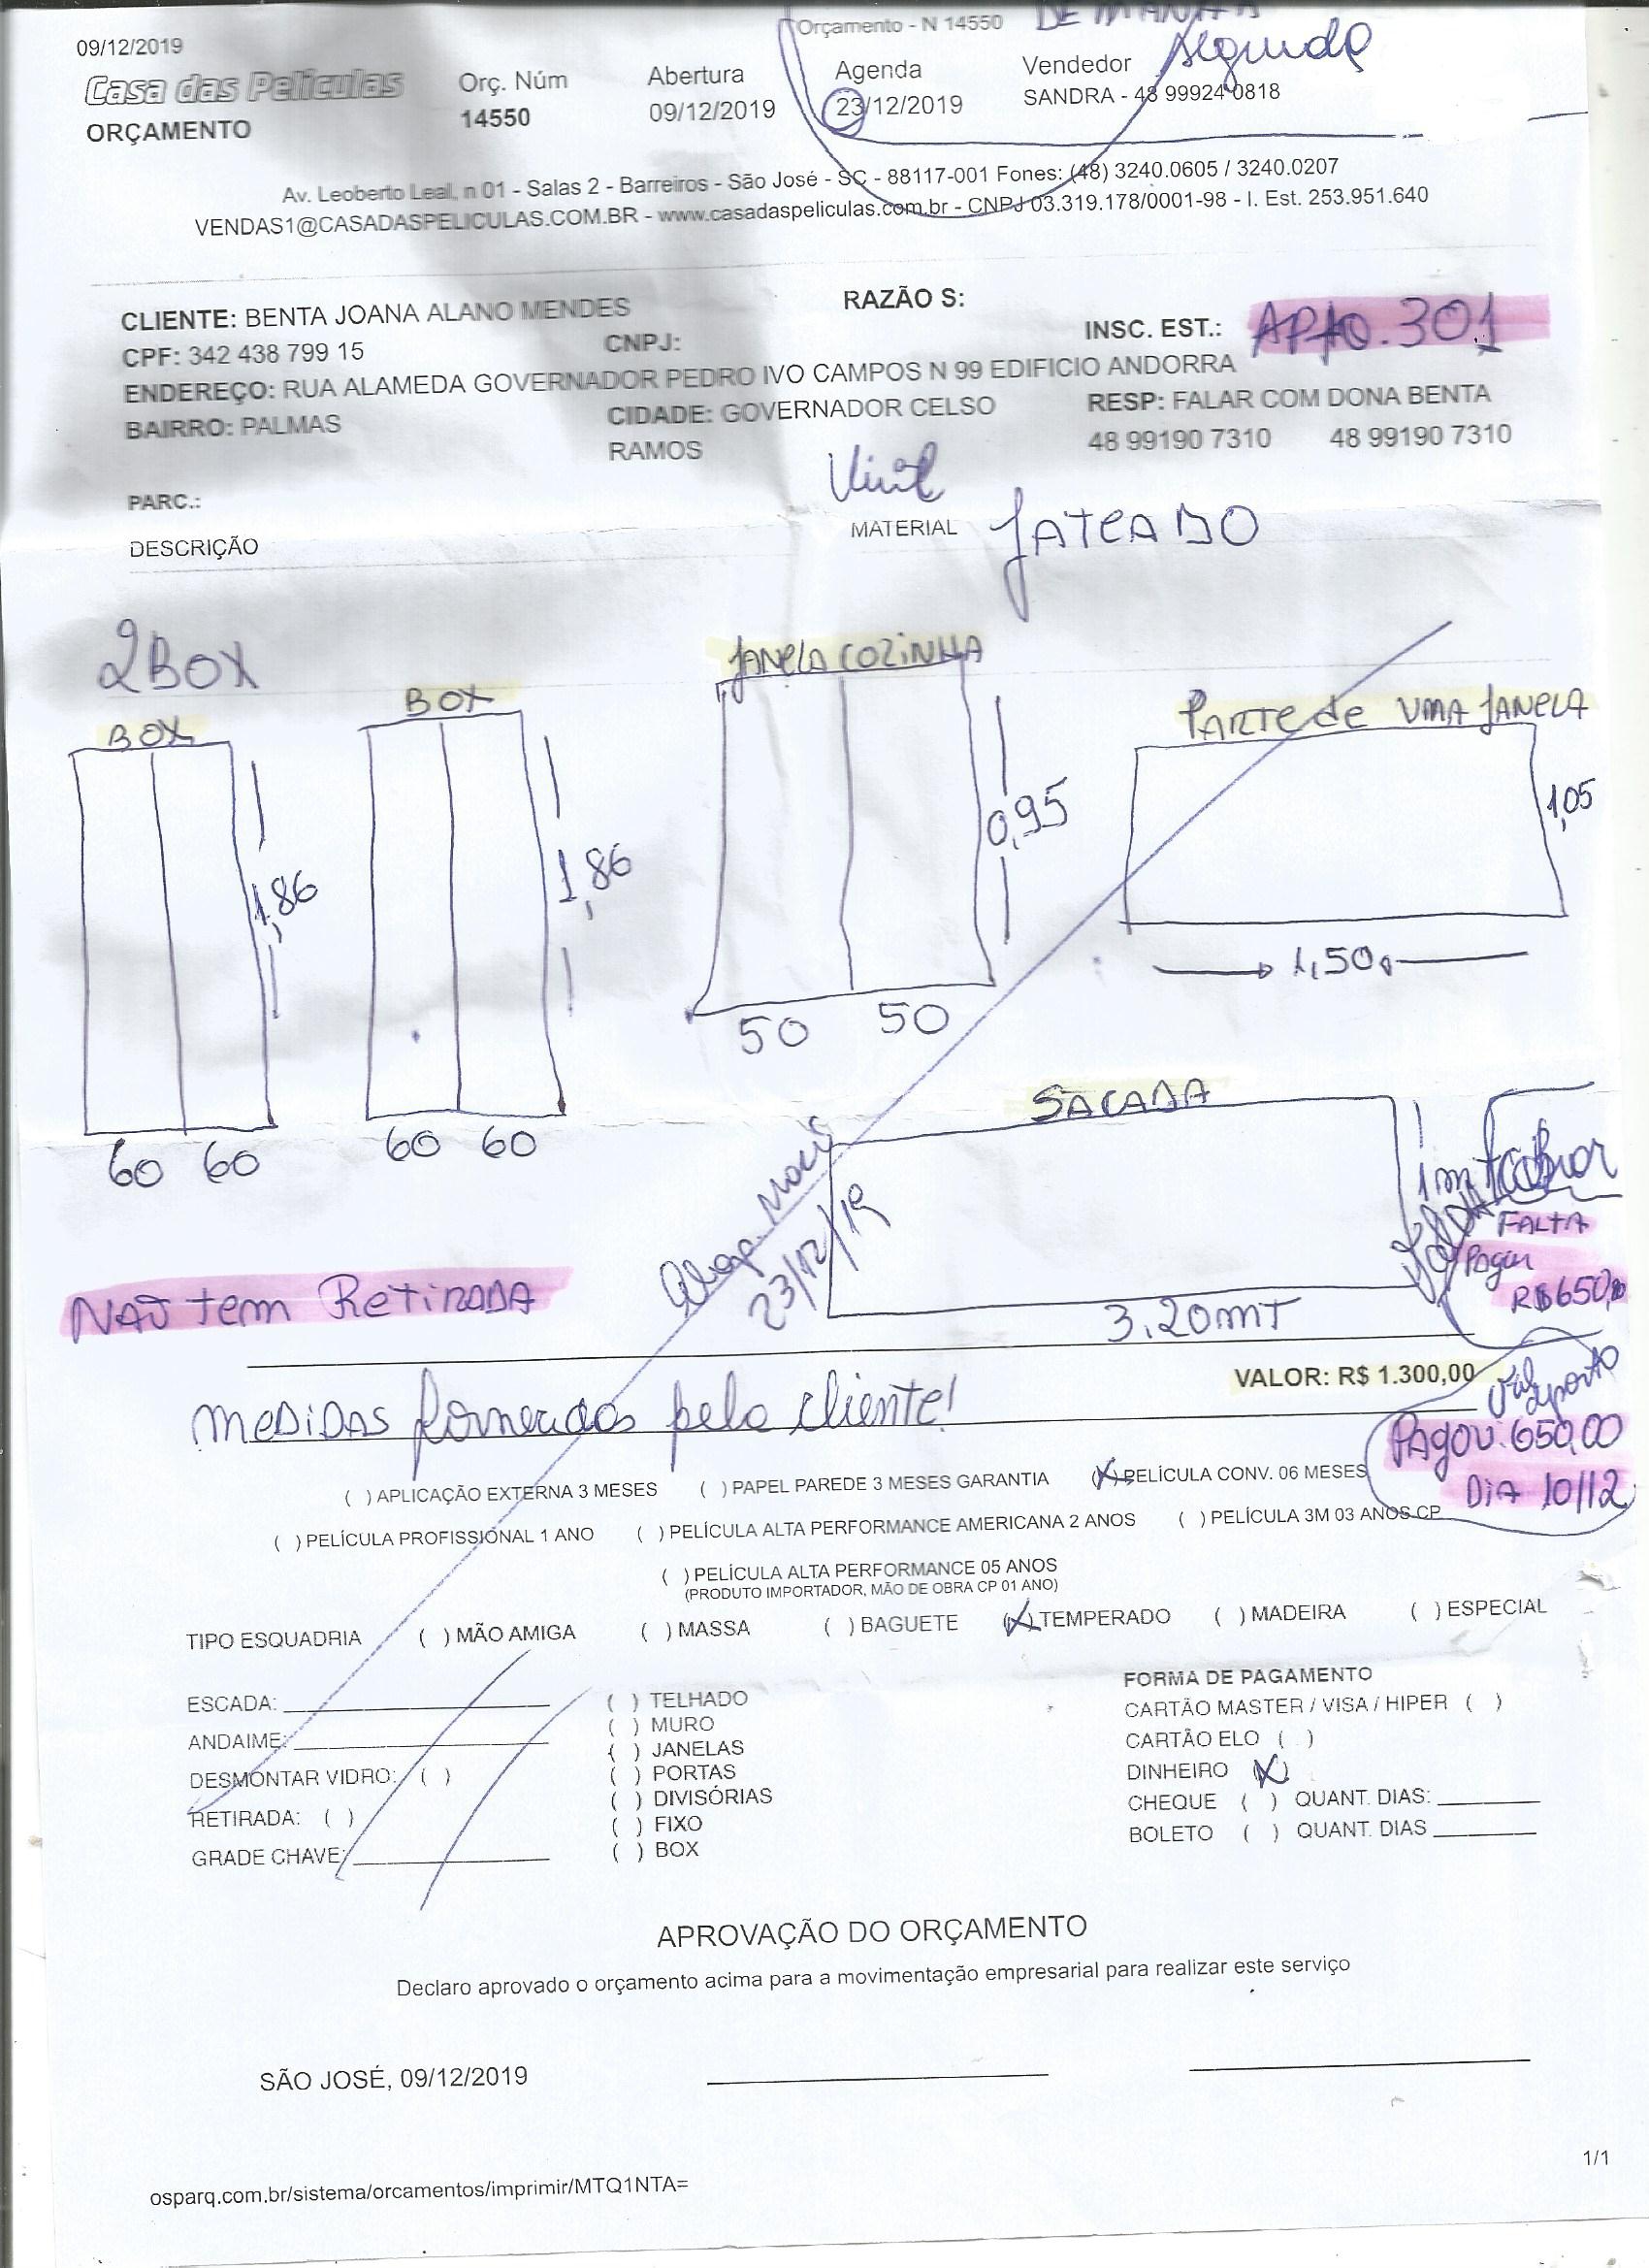 Orçamento - N 14550
DE MANHÃ
segunda
09/12/2019
Casa das Películas
ORÇAMENTO
Orç. Núm
14550
Abertura
09/12/2019
Agenda
23/12/2019
Vendedor
SANDRA - 48 99924 0818
Av. Leoberto Leal, n 01 - Salas 2 - Barreiros - São José - SC - 88117-001 Fones: (48) 3240.0605 / 3240.0207
VENDAS1@CASADASPELICULAS.COM.BR - www.casadaspeliculas.com.br - CNPJ 03.319.178/0001-98 - I. Est. 253.951.640
CLIENTE: BENTA JOANA ALANO MENDES
RAZÃO S:
CPF: 342 438 799 15
CNPJ:
INSC. EST.:
APTO. 301
ENDEREÇO: RUA ALAMEDA GOVERNADOR PEDRO IVO CAMPOS N 99 EDIFICIO ANDORRA
BAIRRO: PALMAS
CIDADE: GOVERNADOR CELSO
RAMOS
RESP: FALAR COM DONA BENTA
48 99190 7310 48 99190 7310
PARC.:
DESCRIÇÃO
MATERIAL
JATEADO
2 BOX
BOX
BOX
JANELA COZINHA
PARTE de UMA JANELA
1,86
1,86
0,95
1,05
1,50
50 50
60 60
60 60
SACADA
1m
23/12/19
FALTA
Pagar
R$650,00
NÃO tem RETIRADA
3.20 MT
VALOR: R$ 1.300,00
MEDIDAS fornecidas pelo cliente!
PAGOU: 650,00
DIA 10/12
( ) APLICAÇÃO EXTERNA 3 MESES ( ) PAPEL PAREDE 3 MESES GARANTIA (X) PELÍCULA CONV. 06 MESES
( ) PELÍCULA PROFISSIONAL 1 ANO ( ) PELÍCULA ALTA PERFORMANCE AMERICANA 2 ANOS ( ) PELÍCULA 3M 03 ANOS CP
( ) PELÍCULA ALTA PERFORMANCE 05 ANOS
(PRODUTO IMPORTADOR, MÃO DE OBRA CP 01 ANO)
TIPO ESQUADRIA ( ) MÃO AMIGA ( ) MASSA ( ) BAGUETE (X) TEMPERADO ( ) MADEIRA ( ) ESPECIAL
ESCADA:
ANDAIME:
DESMONTAR VIDRO: ( )
RETIRADA: ( )
GRADE CHAVE:
( ) TELHADO
( ) MURO
( ) JANELAS
( ) PORTAS
( ) DIVISÓRIAS
( ) FIXO
( ) BOX
FORMA DE PAGAMENTO
CARTÃO MASTER / VISA / HIPER ( )
CARTÃO ELO ( )
DINHEIRO (X)
CHEQUE ( ) QUANT. DIAS:
BOLETO ( ) QUANT. DIAS
APROVAÇÃO DO ORÇAMENTO
Declaro aprovado o orçamento acima para a movimentação empresarial para realizar este serviço
SÃO JOSÉ, 09/12/2019
1/1
osparq.com.br/sistema/orcamentos/imprimir/MTQ1NTA=